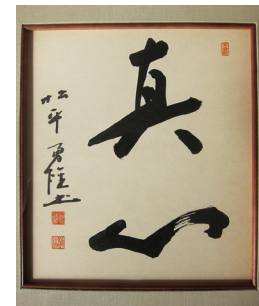 真心
松平勇雄書